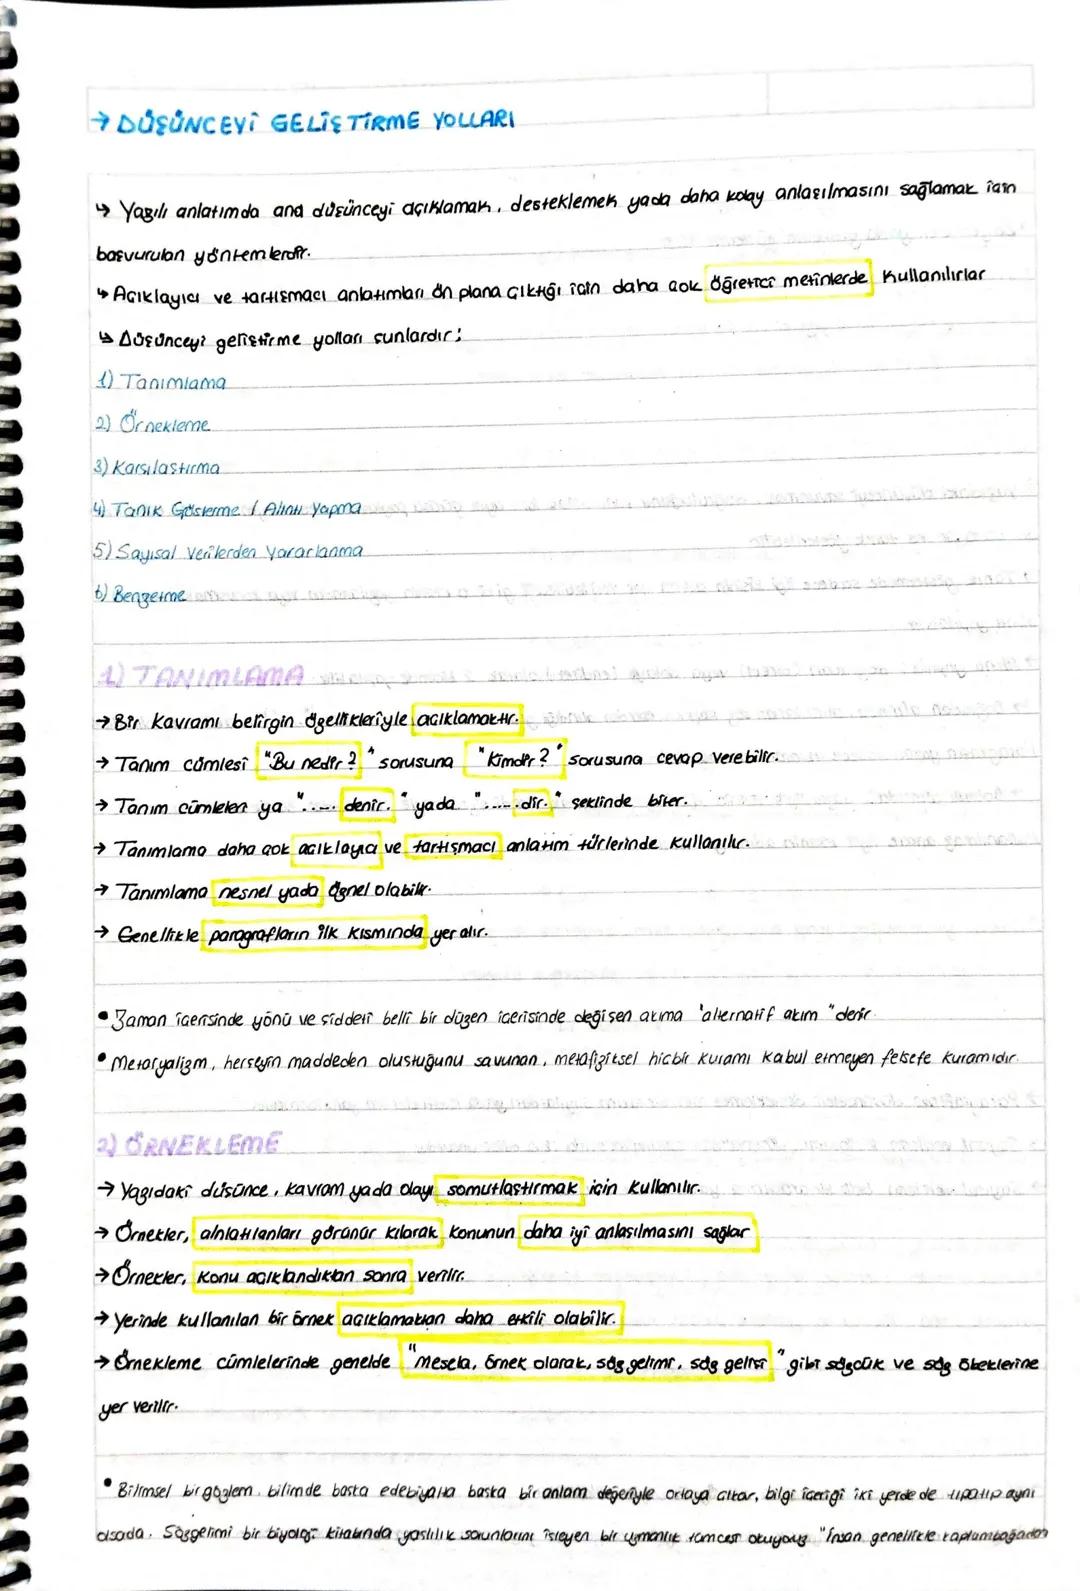 → DÜŞÜNCEYİ GELİŞTİRME YOLLARI
↳ Yazılı anlatımda ana düşünceyi açıklamak, desteklemek yada daha kolay anlaşılmasını sağlamak için
başvurulan yöntemlerdir.
↳ Açıklayıcı ve tartışmacı anlatımları ön plana çıktığı için daha çok öğretici metinlerde kullanılırlar
↳ Düşünceyi geliştirme yolları şunlardır;
1) Tanımlama
2) Örnekleme
3) Karşılaştırma
4) Tanık Gösterme / Alıntı Yapma
5) Sayısal Verilerden Yararlanma
6) Benzetme
1) TANIMLAMA
→ Bir kavramı belirgin özellikleriyle açıklamaktır.
→ Tanım cümlesi "Bu nedir?" sorusuna "Kimdir?" sorusuna cevap verebilir.
→ Tanım cümleleri ya "..... denir." yada "......dir." şeklinde biter.
→ Tanımlama daha çok açıklayıcı ve tartışmacı anlatım türlerinde kullanılır.
→ Tanımlama nesnel yada öznel olabilir.
→ Genellikle paragrafların ilk kısmında yer alır.
• Zaman içerisinde yönü ve şiddeti belli bir düzen içerisinde değişen akıma "alternatif akım" denir.
• Metaryalizm, herşeyin maddeden oluştuğunu savunan, metafiziksel hiçbir kuramı kabul etmeyen felsefe kuramıdır.
2) ÖRNEKLEME
→ Yazıdaki düşünce, kavram yada olayı somutlaştırmak için kullanılır.
→ Örnekler, alnlatılanları görünür kılarak konunun daha iyi anlaşılmasını sağlar
→ Örnekler, konu açıklandıktan sonra verilir.
→ Yerinde kullanılan bir örnek açıklamaktan daha etkili olabilir.
→ Örnekleme cümlelerinde genelde "mesela, örnek olarak, söz gelimi, söz gelişi" gibi sözcük ve söz öbeklerine
yer verilir.
• Bilimsel bir gözlem bilimde başta edebiyatta başka bir anlam değeriyle ortaya çıkar, bilgi içeriği iki yerde de tıpatıp aynı
olsada. Sözgelimi bir biyoloji kitabında yaşlılık sorunlarını işleyen bir uzmanlık tümcesi okuyoruz "İnsan genellikle kaplumbağadan